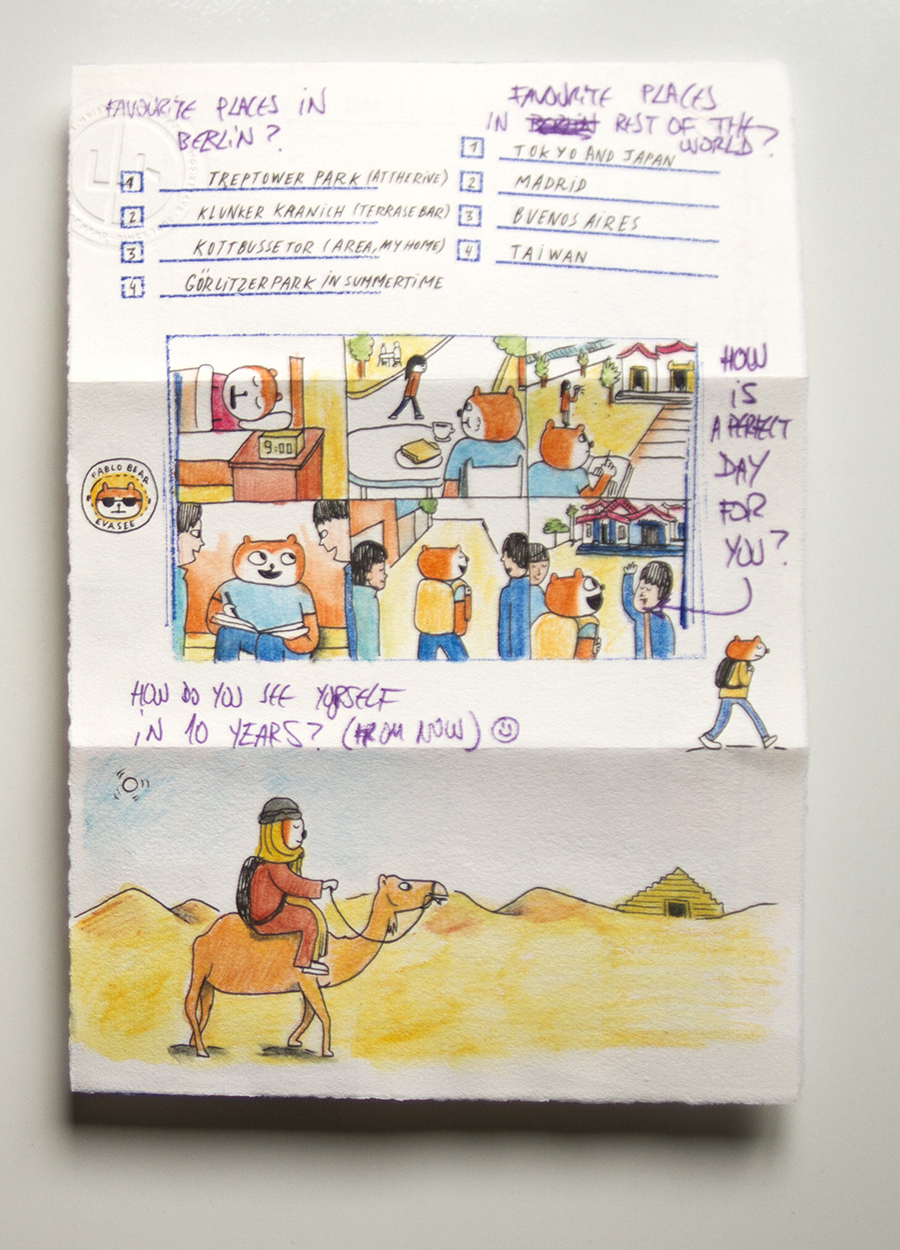 FAVOURITE PLACES IN
BERLIN?
1 TREPTOWER PARK (ATTHERIVE)
2 KLUNKER KRANICH (TERRASEBAR)
3 KOTTBUSSETOR (AREA, MY HOME)
4 GÖRLITZERPARK IN SUMMERTIME
FAVOURITE PLACES
IN BERLIN REST OF THE
WORLD?
1 TOKYO AND JAPAN
2 MADRID
3 BUENOS AIRES
4 TAIWAN
9:00
HOW
IS
A PERFECT
DAY
FOR
YOU?
PABLO BEAR
EVASEE
HOW DO YOU SEE YOURSELF
IN 10 YEARS? (FROM NOW)